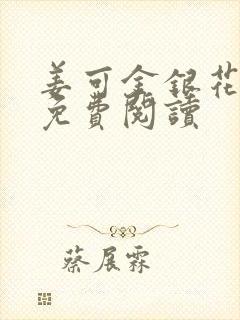 姜可金銀花
免費閱讀
蔡展霖